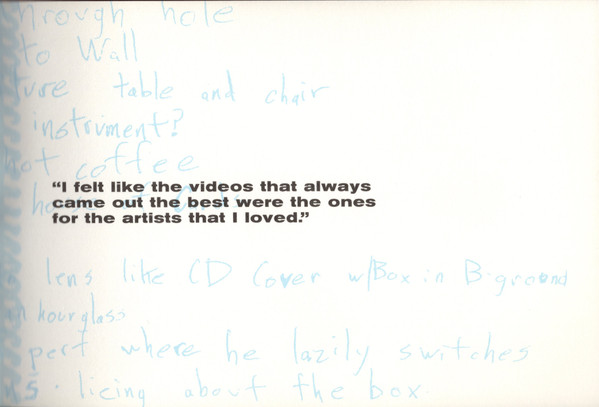 through hole
to Wall
ture table and chair
instrument?
hot coffee
"I felt like the videos that always
came out the best were the ones
for the artists that I loved."
lens like CD Cover w/Box in B.ground
in hourglass
pert where he lazily switches
licing about the box